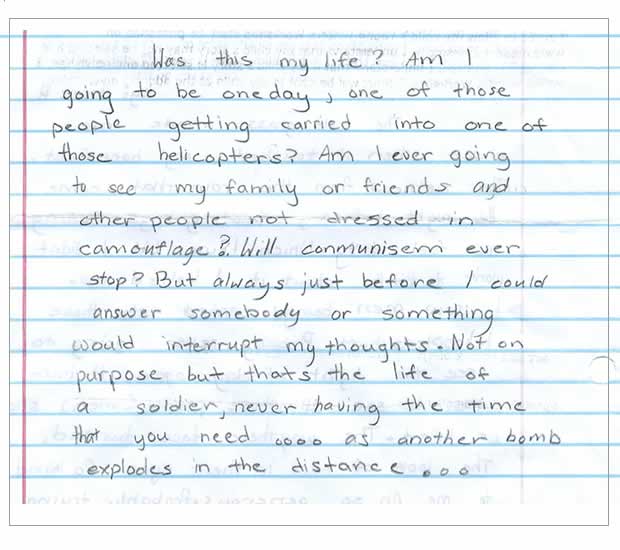 Was this my life? Am I
going to be oneday, one of those
people getting carried into one of
those helicopters? Am I ever going
to see my family or friends and
other people not dressed in
camouflage? Will conmunisem ever
stop? But always just before I could
answer somebody or something
would interrupt my thoughts. Not on
purpose but thats the life of
a soldier, never having the time
that you need .... as another bomb
explodes in the distance ...